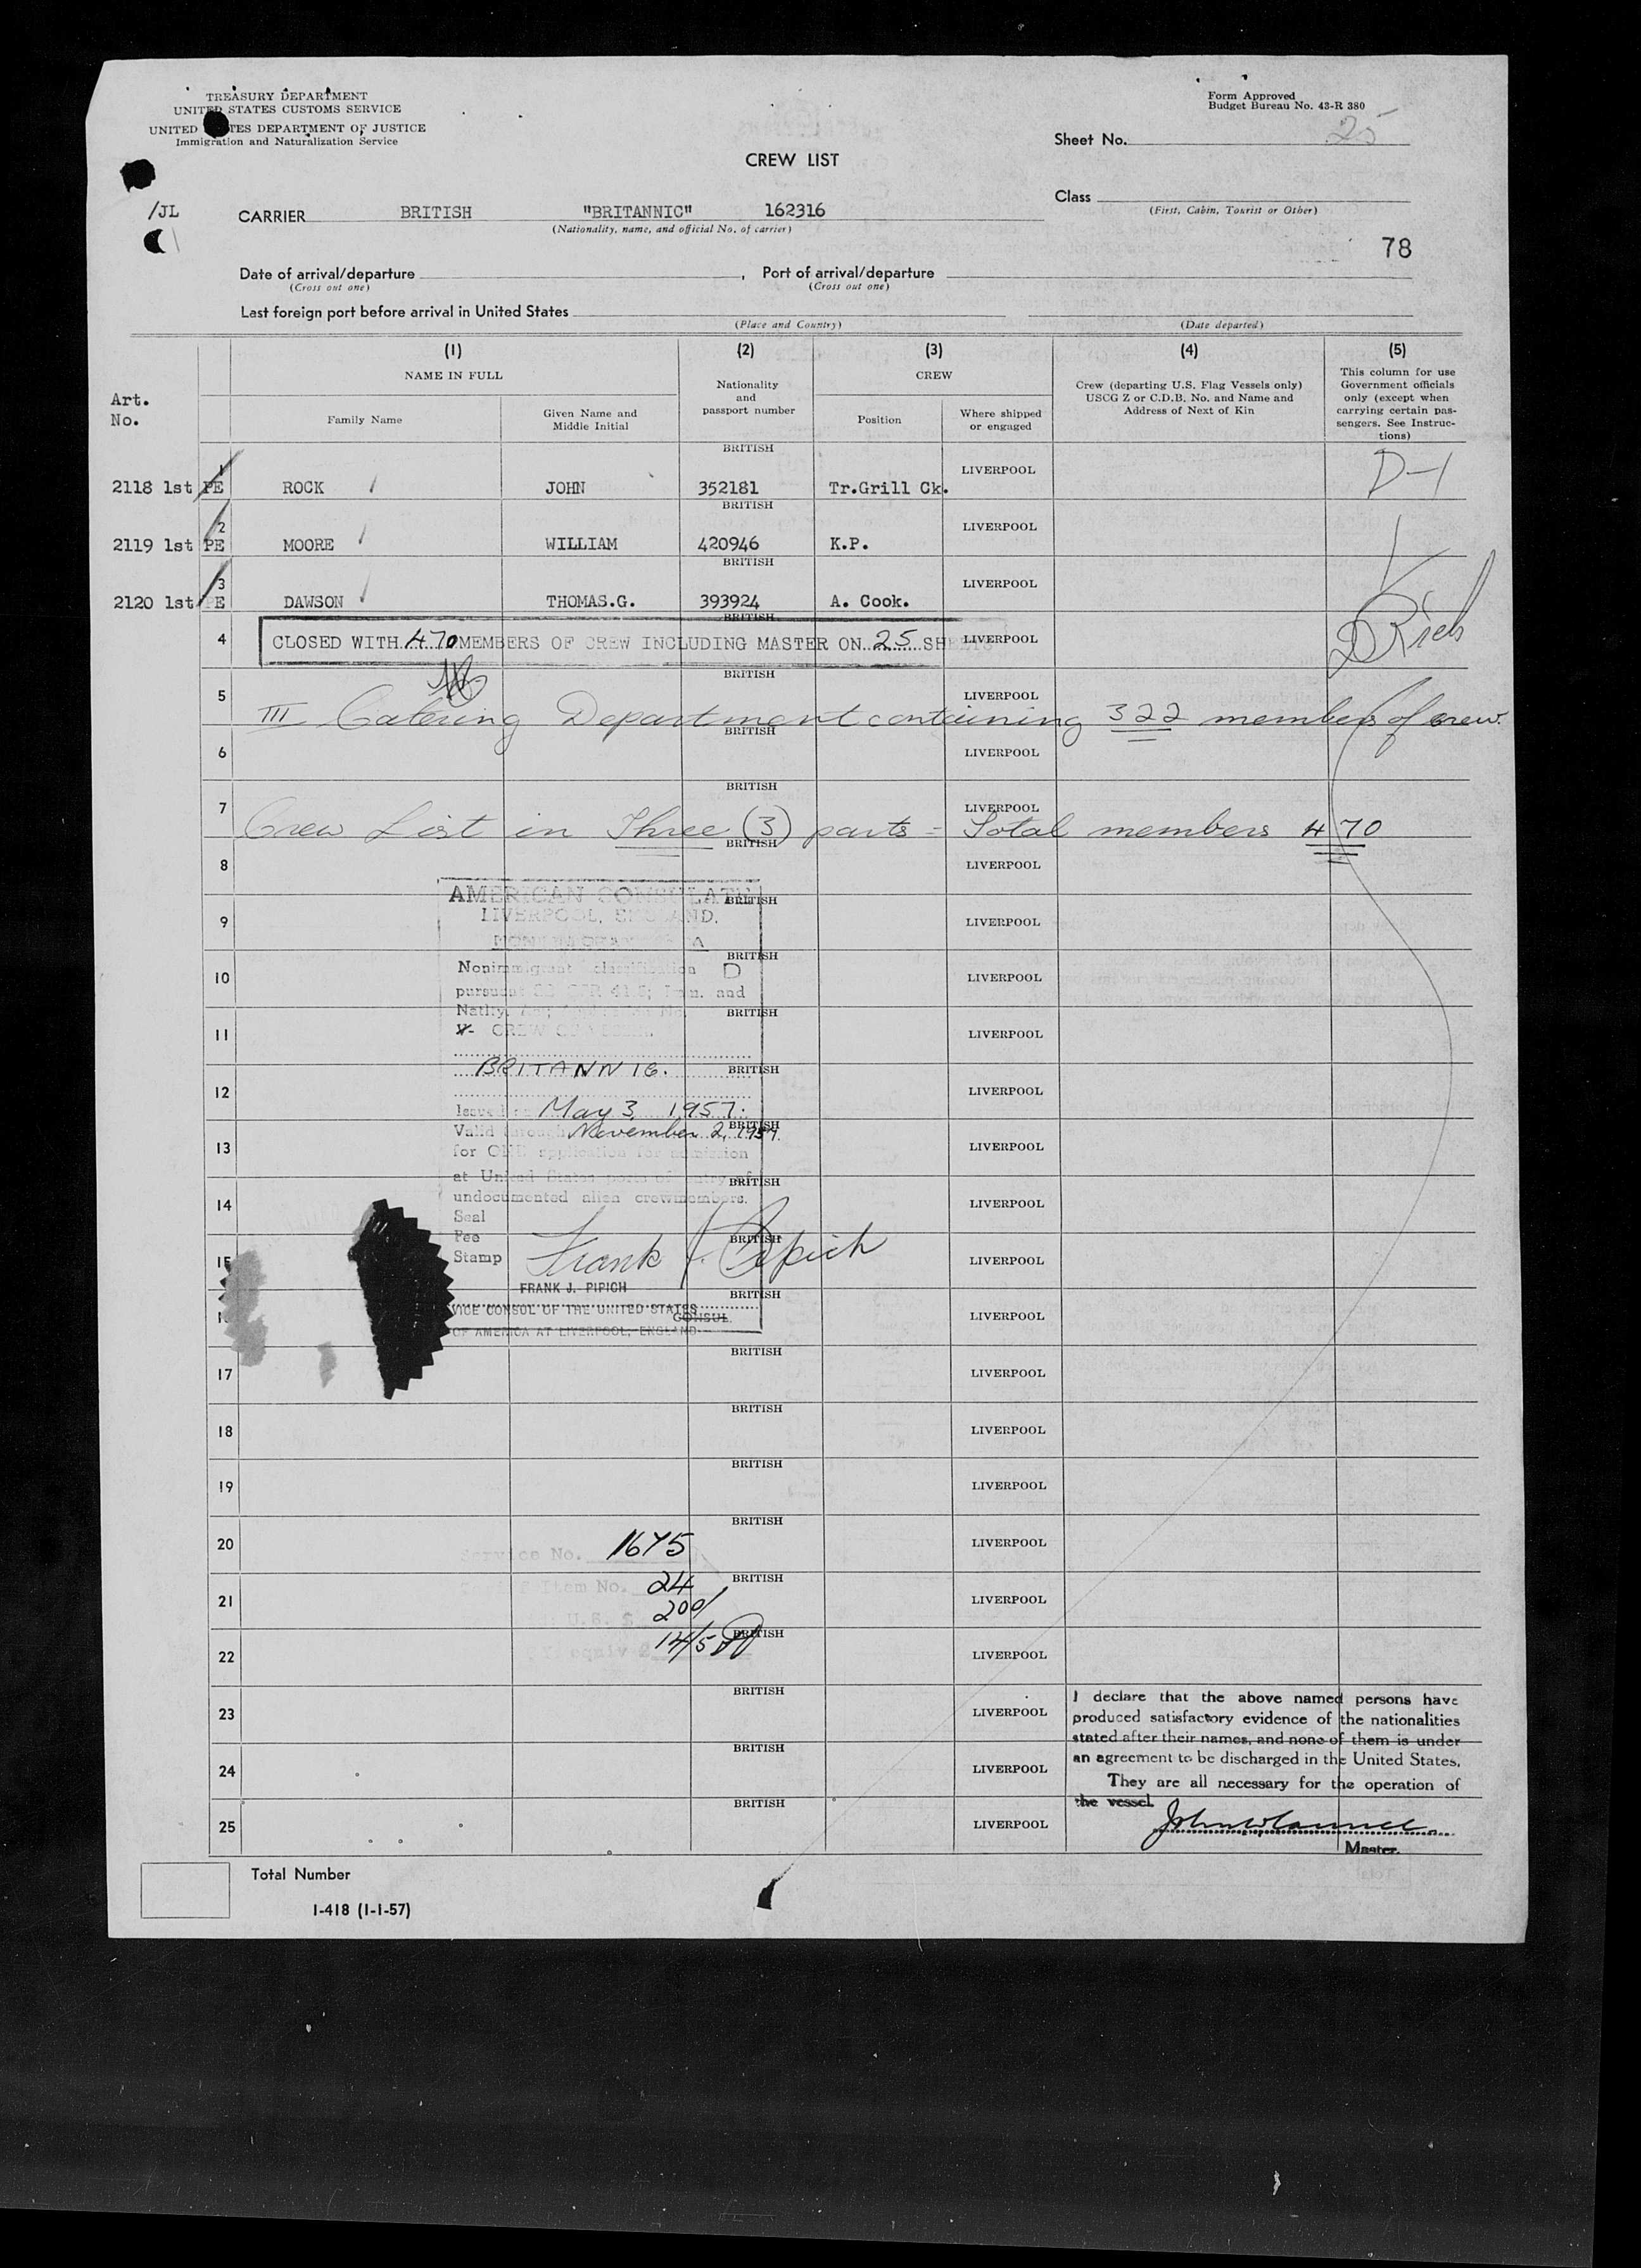 TREASURY DEPARTMENT
UNITED STATES CUSTOMS SERVICE
UNITED TES DEPARTMENT OF JUSTICE
Immigration and Naturalization Service
Form Approved
Budget Bureau No. 43-R 380
Sheet No. 25
CREW LIST
Class
(First, Cabin, Tourist or Other)
/JL CARRIER BRITISH "BRITANNIC" 162316
(Nationality, name, and official No. of carrier)
78
Date of arrival/departure , Port of arrival/departure
(Cross out one) (Cross out one)
Last foreign port before arrival in United States
(Place and Country) (Date departed)
(1) (2) (3) (4) (5)
NAME IN FULL
Nationality and passport number
CREW
Crew (departing U.S. Flag Vessels only)
USCG Z or C.D.B. No. and Name and
Address of Next of Kin
This column for use
Government officials
only (except when
carrying certain pas-
sengers. See Instruc-
tions)
Art.
No.
Family Name
Given Name and
Middle Initial
Position
Where shipped
or engaged
BRITISH
2118 1st PE 1 ROCK JOHN 352181 Tr.Grill Ck. LIVERPOOL D-1
BRITISH
2119 1st PE 2 MOORE WILLIAM 420946 K.P. LIVERPOOL
BRITISH
2120 1st PE 3 DAWSON THOMAS.G. 393924 A. Cook. LIVERPOOL
BRITISH
4 CLOSED WITH 470 MEMBERS OF CREW INCLUDING MASTER ON 25 SHEETS LIVERPOOL
BRITISH
5 LIVERPOOL
III Catering Department containing 322 members of crew.
BRITISH
6 LIVERPOOL
BRITISH
7 LIVERPOOL
Crew List in Three (3) parts - Total members 470
BRITISH
8 LIVERPOOL
AMERICAN CONSULATE
BRITISH
LIVERPOOL, ENGLAND.
9 LIVERPOOL
BRITISH
Nonimmigrant classification D
10 LIVERPOOL
pursuant and
BRITISH
11 LIVERPOOL
CREW
BRITANNIC.
BRITISH
12 LIVERPOOL
Issued on May 3 1957.
BRITISH
Valid through November 2, 1957.
13 LIVERPOOL
for ONE application for admission
at United States ports of entry of
BRITISH
undocumented alien crewmembers.
14 LIVERPOOL
Seal
Fee
Stamp
BRITISH
Frank J. Pipich
15 LIVERPOOL
FRANK J. PIPICH
BRITISH
VICE CONSUL OF THE UNITED STATES
CONSUL.
OF AMERICA AT LIVERPOOL, ENGLAND
LIVERPOOL
BRITISH
17 LIVERPOOL
BRITISH
18 LIVERPOOL
BRITISH
19 LIVERPOOL
BRITISH
20 LIVERPOOL
Service No. 1675
BRITISH
Item No. 24
21 LIVERPOOL
U.S. $ 200/
BRITISH
equiv 14/5
22 LIVERPOOL
BRITISH
23 LIVERPOOL
BRITISH
24 LIVERPOOL
BRITISH
25 LIVERPOOL
I declare that the above named persons have
produced satisfactory evidence of the nationalities
stated after their names, and none of them is under
an agreement to be discharged in the United States.
They are all necessary for the operation of
the vessel.
Master.
Total Number
I-418 (1-1-57)